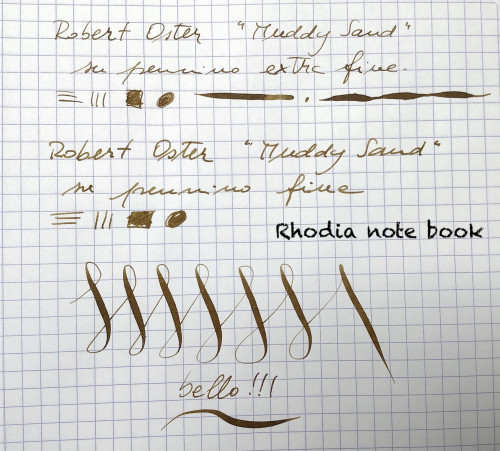 Robert Oster "Muddy Sand"
su pennino extra fine.
Robert Oster "Muddy Sand"
su pennino fine
Rhodia note book
bello!!!